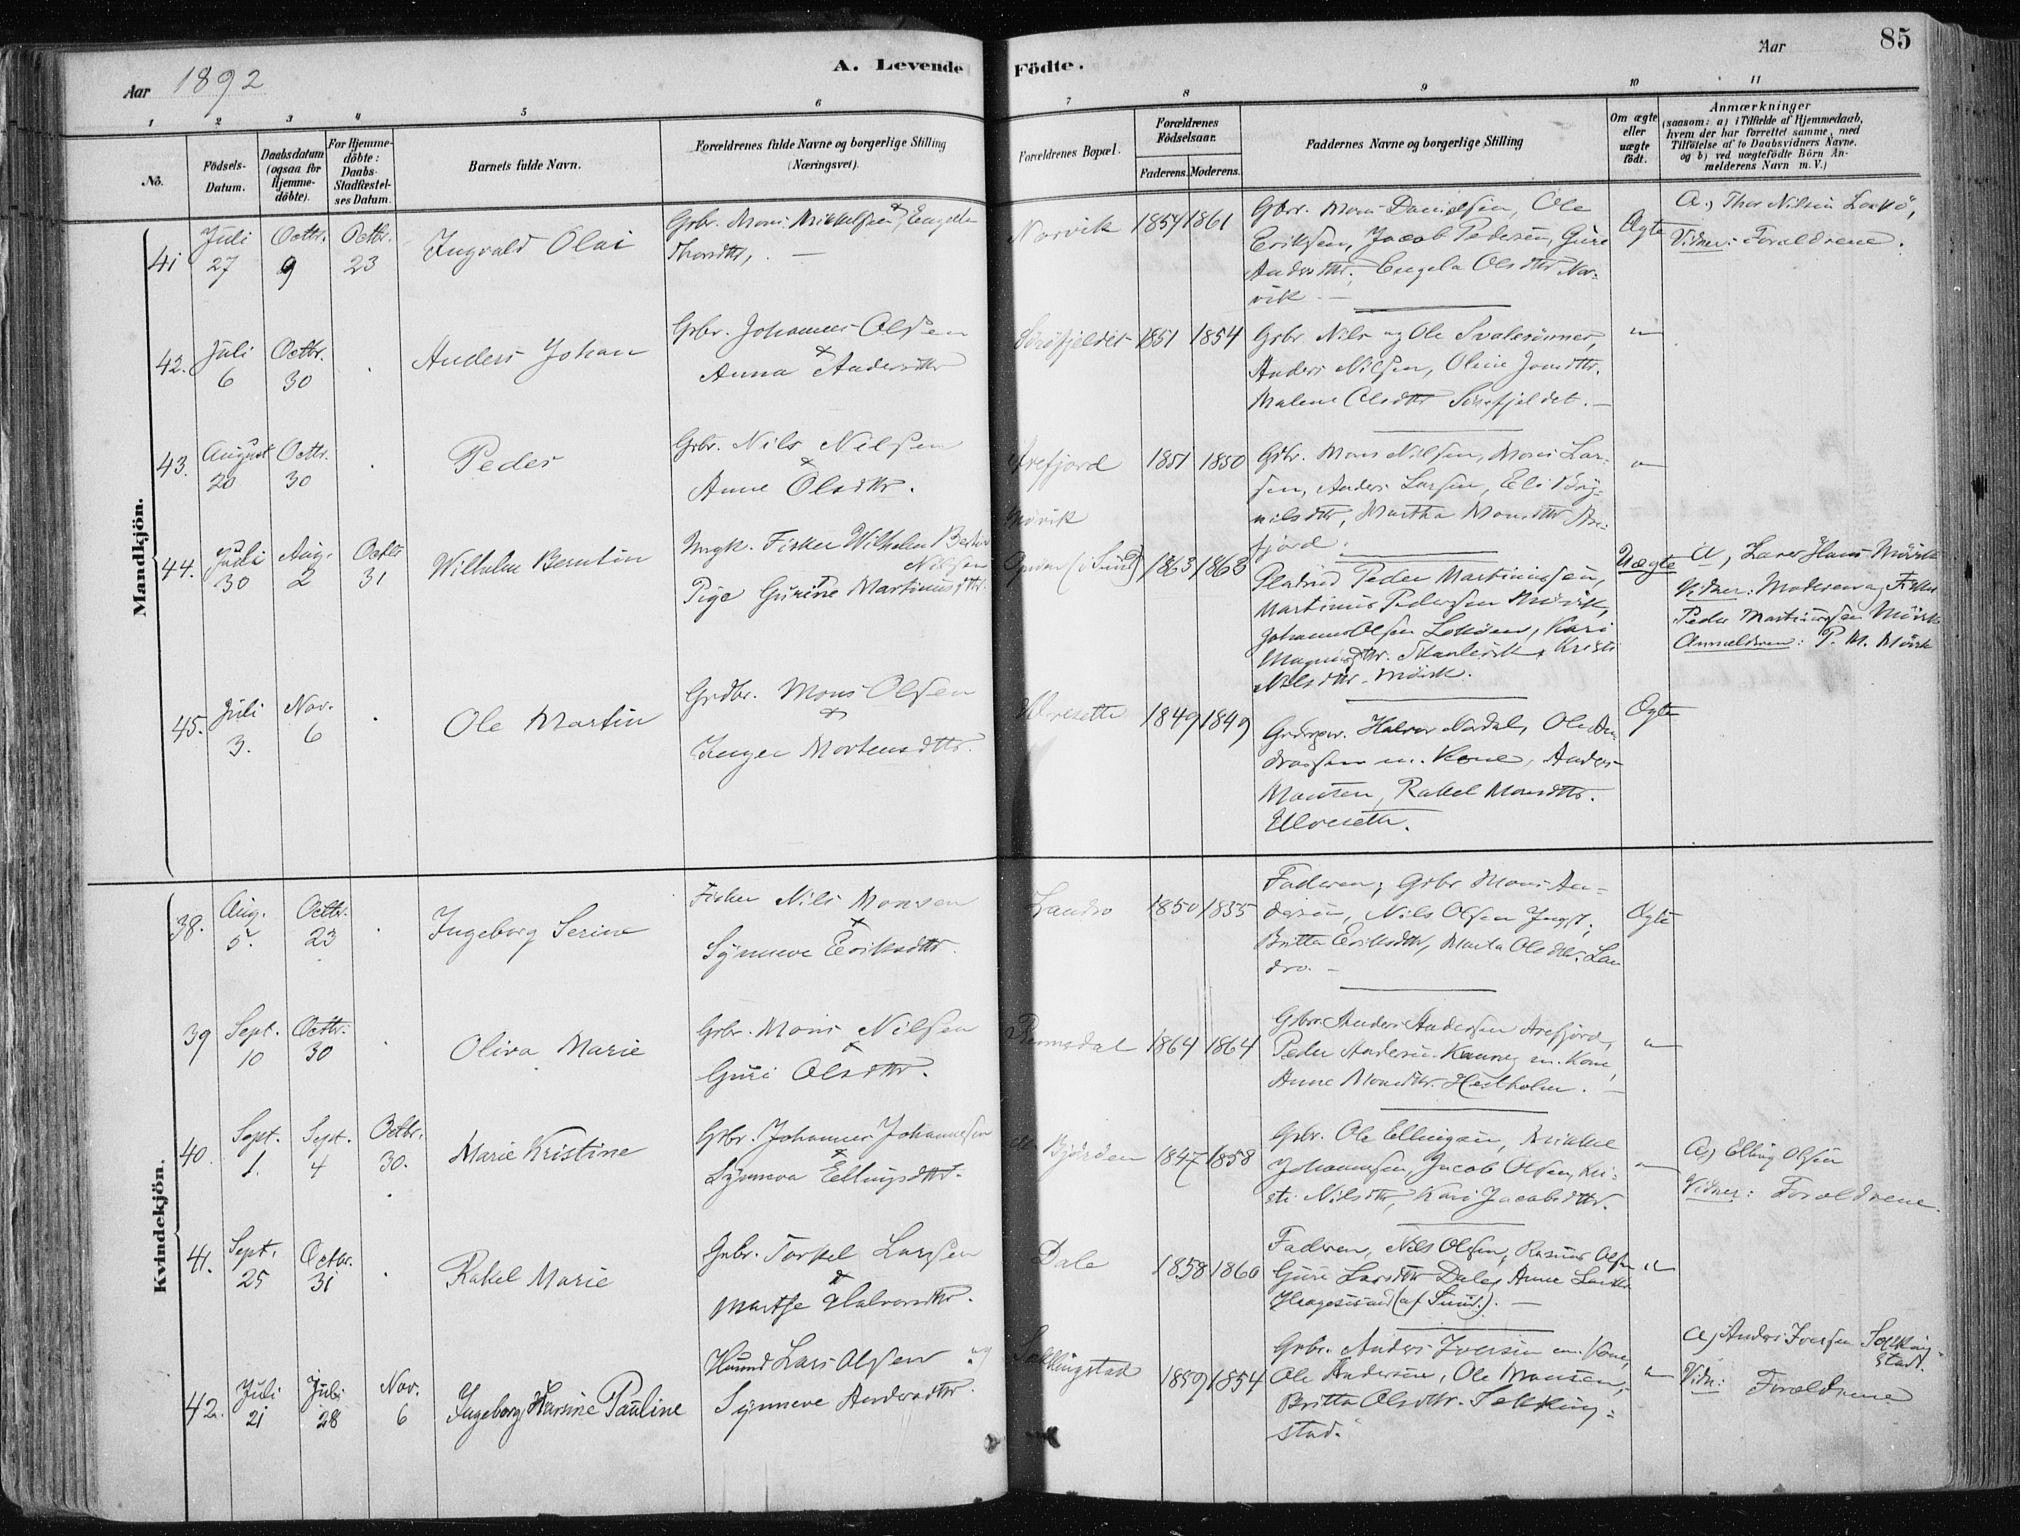 Aar 1892
A. Levende Födte.
Aar
85
1 2 3 4 5 6 7 8 9 10 11
Nö.
Födsels-Datum.
Daabsdatum (ogsaa for Hjemme-döbte).
For Hjemme-döbte: Daabs-Stadfæstel-ses Datum.
Barnets fulde Navn.
Forældrenes fulde Navne og borgerlige Stilling (Næringsvei).
Forældrenes Bopæl.
Forældrenes Födselsaar.
Faderens. Moderens.
Faddernes Navne og borgerlige Stilling
Om ægte eller uægte födt.
Anmærkninger
(saasom: a) i Tilfælde af Hjemmedaab,
hvem der har forrettet samme, med
Tilföielse af to Daabsvidners Navne.
og b) ved uægtefödte Börn An-
melderens Navn m. V.)
Mandkjön.
41 Juli 27 Octbr. 9 Octbr. 23 Ingvald Olai
Grbr. Mons Mikkelsen & Engele
Thorsdtr. —
Norvik 1854 1861
Gbr. Mons Danielsen, Ole
Eriksen, Jacob Pedersen, Guri
Andersdtr, Engela Olsdtr Nor-
vik —
Ægte
a, Thor Nilsen
Vidner: Forældrene.
42. Juli 6 Octbr. 30 . Anders Johan
Grbr. Johannes Olsen
&
Anna Andersdtr
1851 1854
Grbr Nils og Ole
Anders Nilsen, Oline Jonsdtr.
Malene Olsdtr Sörefjeldet. —
"
43. August 20 Octbr. 30 . Peder
Grbr. Nils Nilsen
&
Anne Olsdtr.
Arefjord 1851 1850
Grbr. Mons Nilsen, Mons Lar-
sen, Anders Larsen, Eli Bryn-
nilsdtr, Martha Monsdtr Are-
fjord.
"
44. Juli 30 Aug. 2 Octbr 31 Wilhelm Berntin
Ungk. Fisker Wilhelm
Nilsen
Pige Gurine Martinusdtr.
(i Sund) 1863 1863
Peder Martinussen,
Martinus Pedersen Mövik,
Johannes Olsen
Kari
Kristi
Nilsdtr. Mövik.
Uægte
a, Lærer Hans Mövik
Vidner: Moderen og Fisker
Peder Martinussen Mövik
Anmelderen: P. M. Mövik
45. Juli 3. Nov. 6 . Ole Martin
Grdbr. Mons Olsen
&
Inger Mortensdtr.
Ulvesette 1849 1849
Halvor Nordal, Ole An-
dreassen m. Kone, Anders
Monsen, Rakel Monsdtr.
Ulveseth.
Ægte
Kvindekjön.
38. Aug. 5. Octbr. 23 . Ingeborg Serine
Fisker Nils Monsen
&
Synneve Eriksdtr.
Landro 1850 1855
Faderen, Grbr Mons An-
dersen, Nils Olsen
Britta Eriksdtr, Marta Olsdtr. Lan
dro. —
Ægte
39 Sept. 10 Octbr. 30 . Oliva Marie
Grbr. Mons Nilsen
&
Guri Olsdtr.
1864 1864
Grbr. Anders Andersen Arefjord,
Peder Andersen m. Kone,
Anne Monsdtr. Hestholm. —
"
40. Sept. 1. Sept. 4 Octbr. 30. Marie Kristine
Grbr. Johannes Johannesen
&
Synneva Ellingsdtr.
Björöen 1847 1858
Grbr. Ole Ellingsen, Mikkel
Johannesen, Jacob Olsen, Kri-
sti Nilsdtr, Kari Jacobsdtr.
"
a, Elling Olsen
Vidner: Forældrene.
41. Sept. 25 Octbr. 31 . Rakel Marie
Grbr. Torkel Larsen
&
Martje Halvorsdtr.
Dale 1858 1860
Faderen, Nils Olsen, Rasmus Olsen
Guri Larsdtr Dale, Anne
(af Sund). —
"
42. Juli 21 Juli 28 Nov. 6 Ingeborg Karine Pauline
Huusmd Lars Olsen og
Synneve Andersdtr.
Sekkingstad 1859 1854
Grbr. Anders Iversen m. Kone,
Ole Andersen, Ole Monsen,
Britta Olsdtr. Sekking-
stad.
"
a, Anders Iversen Sekking-
stad.
Vidn: Forældrene